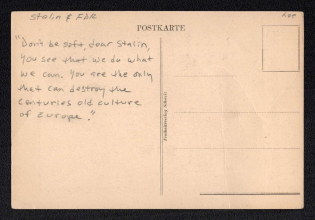 Stalin & FDR
POSTKARTE
"Don't be soft, dear Stalin,
You see that we do what
we can. You are the only
that can destroy the
Centuries old culture
of Europe."